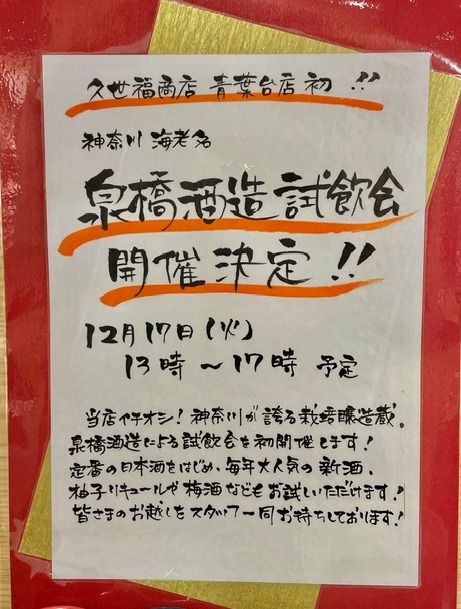 久世福商店 青葉台店 初 !!
神奈川 海老名
泉橋酒造試飲会
開催決定!!
12月17日(火)
13時〜17時 予定
当店イチオシ!神奈川が誇る栽培醸造蔵、
泉橋酒造による試飲会を初開催します!
定番の日本酒をはじめ、毎年大人気の新酒、
柚子リキュールや梅酒などもお試しいただけます!
皆さまのお越しをスタッフ一同お待ちしております!